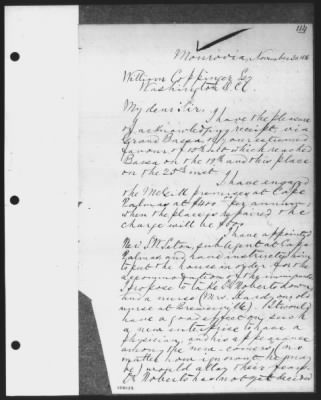 114
Monrovia, November
William Coppinger Esq
Washington D. C.
My dear Sir,
I have the pleasure
of acknowledging receipt, via
Grand Bassa of your esteemed
favour of 10th which reached
Bassa on the 19th and this place
on the 20th inst.
I have engaged
the McGill premises at Cape
Palmas at $400 per annum
when the place is repaired the
charge will be
I have appointed
Mr. S. N. sub Agent at Cape
Palmas and have instructed him
to put the house in order for the
accommodation of the immigrants
I propose to take Dr Roberts down
and a nurse (Mrs. Hardy an old
nurse at Brewerville). It would
have a good effect on such
a new enterprise to have a
physician, and his appearance
among the new-comers (no
matter how ignorant he may
be) would allay their fears.
Dr Roberts has not yet decided